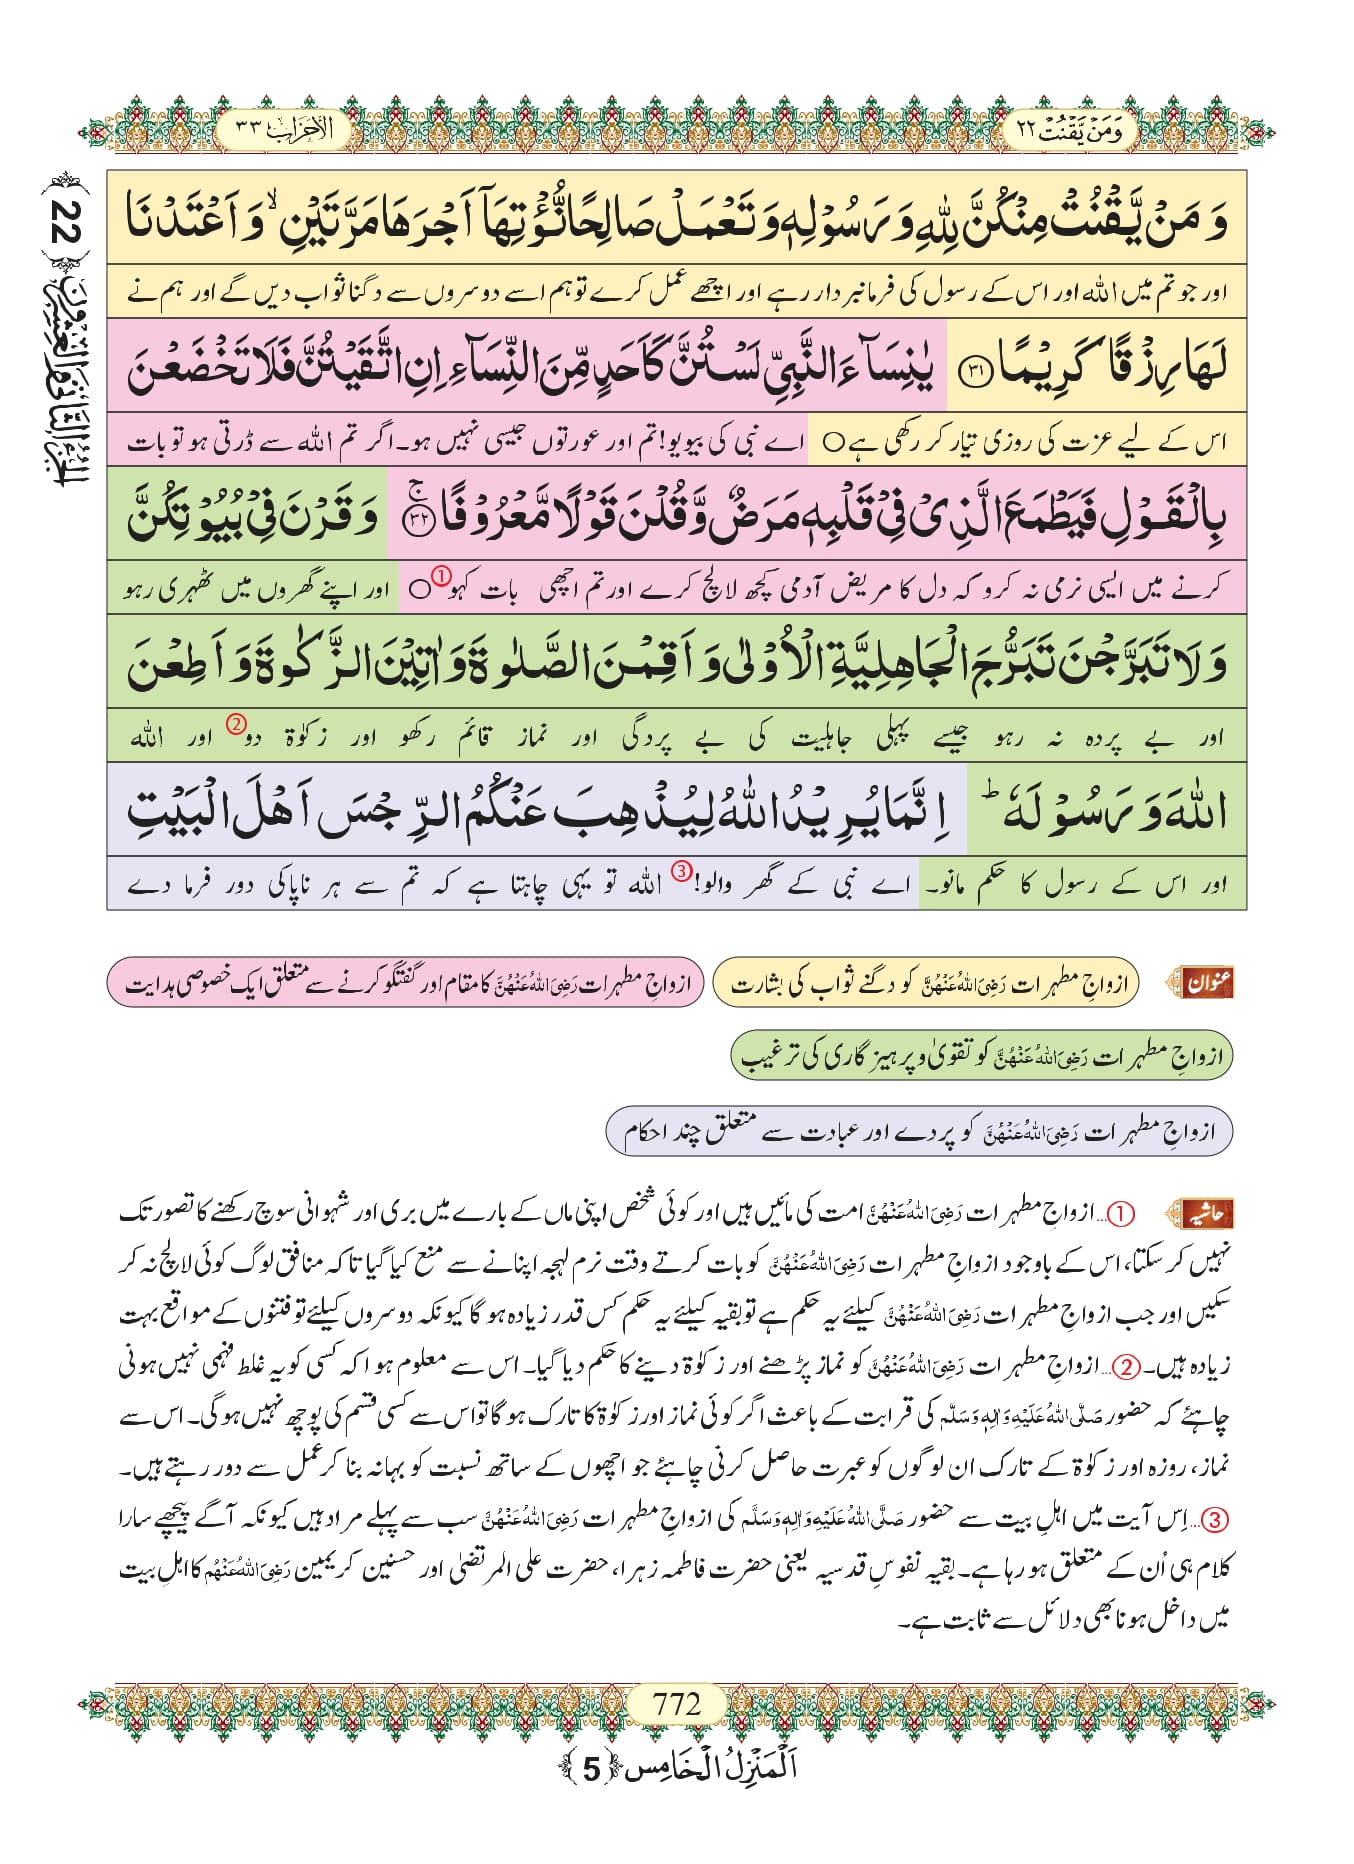 وَمَنْ يَّقْنُتْ ٢٢
الاحزاب ٣٣
الجزء الثانى والعشرون ﴿22﴾
وَ مَنْ یَّقْنُتْ مِنْكُنَّ لِلّٰهِ وَ رَسُوْلِهٖ وَ تَعْمَلْ صَالِحًا نُّؤْتِهَاۤ اَجْرَهَا مَرَّتَیْنِۙ وَ اَعْتَدْنَا
اور جو تم میں اللہ اور اس کے رسول کی فرمانبردار رہے اور اچھے عمل کرے تو ہم اسے دوسروں سے دگنا ثواب دیں گے اور ہم نے
لَهَا رِزْقًا كَرِیْمًا ﴿۳۱﴾ یٰنِسَآءَ النَّبِیِّ لَسْتُنَّ كَاَحَدٍ مِّنَ النِّسَآءِ اِنِ اتَّقَیْتُنَّ فَلَا تَخْضَعْنَ
اس کے لیے عزت کی روزی تیار کر رکھی ہے ○ اے نبی کی بیویو! تم اور عورتوں جیسی نہیں ہو۔ اگر تم اللہ سے ڈرتی ہو تو بات
بِالْقَوْلِ فَیَطْمَعَ الَّذِیْ فِیْ قَلْبِهٖ مَرَضٌ وَّ قُلْنَ قَوْلًا مَّعْرُوْفًا ﴿۳۲﴾ۚ وَ قَرْنَ فِیْ بُیُوْتِكُنَّ
کرنے میں ایسی نرمی نہ کرو کہ دل کا مریض آدمی کچھ لالچ کرے اور تم اچھی بات کہو ① ○ اور اپنے گھروں میں ٹھہری رہو
وَ لَا تَبَرَّجْنَ تَبَرُّجَ الْجَاهِلِیَّةِ الْاُوْلٰى وَ اَقِمْنَ الصَّلٰوةَ وَ اٰتِیْنَ الزَّكٰوةَ وَ اَطِعْنَ
اور بے پردہ نہ رہو جیسے پہلی جاہلیت کی بے پردگی اور نماز قائم رکھو اور زکوٰۃ دو ② اور اللہ
اللّٰهَ وَ رَسُوْلَهٗؕ اِنَّمَا یُرِیْدُ اللّٰهُ لِیُذْهِبَ عَنْكُمُ الرِّجْسَ اَهْلَ الْبَیْتِ
اور اس کے رسول کا حکم مانو۔ اے نبی کے گھر والو! ③ اللہ تو یہی چاہتا ہے کہ تم سے ہر ناپاکی دور فرما دے
عنوان ازواجِ مطہرات رَضِیَ اللہُ عَنْہُنَّ کو دگنے ثواب کی بشارت ازواجِ مطہرات رَضِیَ اللہُ عَنْہُنَّ کا مقام اور گفتگو کرنے سے متعلق ایک خصوصی ہدایت
ازواجِ مطہرات رَضِیَ اللہُ عَنْہُنَّ کو تقویٰ و پرہیزگاری کی ترغیب
ازواجِ مطہرات رَضِیَ اللہُ عَنْہُنَّ کو پردے اور عبادت سے متعلق چند احکام
حاشیہ ①...ازواجِ مطہرات رَضِیَ اللہُ عَنْہُنَّ امت کی مائیں ہیں اور کوئی شخص اپنی ماں کے بارے میں بری اور شہوانی سوچ رکھنے کا تصور تک
نہیں کر سکتا، اس کے باوجود ازواجِ مطہرات رَضِیَ اللہُ عَنْہُنَّ کو بات کرتے وقت نرم لہجہ اپنانے سے منع کیا گیا تاکہ منافق لوگ کوئی لالچ نہ کر
سکیں اور جب ازواجِ مطہرات رَضِیَ اللہُ عَنْہُنَّ کیلئے یہ حکم ہے تو بقیہ کیلئے یہ حکم کس قدر زیادہ ہو گا کیونکہ دوسروں کیلئے تو فتنوں کے مواقع بہت
زیادہ ہیں۔ ②...ازواجِ مطہرات رَضِیَ اللہُ عَنْہُنَّ کو نماز پڑھنے اور زکوٰۃ دینے کا حکم دیا گیا۔ اس سے معلوم ہوا کہ کسی کو یہ غلط فہمی نہیں ہونی
چاہئے کہ حضور صَلَّی اللہُ عَلَیْہِ وَاٰلِہٖ وَسَلَّم کی قرابت کے باعث اگر کوئی نماز اور زکوٰۃ کا تارک ہو گا تو اس سے کسی قسم کی پوچھ نہیں ہو گی۔ اس سے
نماز، روزہ اور زکوٰۃ کے تارک ان لوگوں کو عبرت حاصل کرنی چاہئے جو اچھوں کے ساتھ نسبت کو بہانہ بنا کر عمل سے دور رہتے ہیں۔
③...اِس آیت میں اہلِ بیت سے حضور صَلَّی اللہُ عَلَیْہِ وَاٰلِہٖ وَسَلَّم کی ازواجِ مطہرات رَضِیَ اللہُ عَنْہُنَّ سب سے پہلے مراد ہیں کیونکہ آگے پیچھے سارا
کلام ہی اُن کے متعلق ہو رہا ہے۔ بقیہ نفوسِ قدسیہ یعنی حضرت فاطمہ زہرا، حضرت علی المرتضیٰ اور حسنین کریمین رَضِیَ اللہُ عَنْہُم کا اہلِ بیت
میں داخل ہونا بھی دلائل سے ثابت ہے۔
772
اَلْمَنْزِلُ الْخَامِس ﴿5﴾